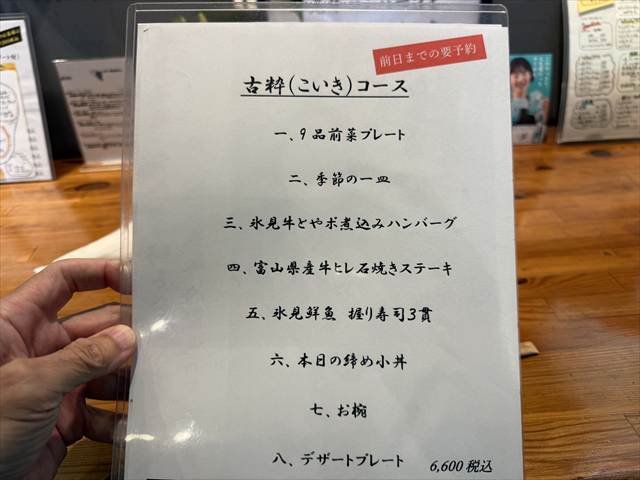 前日までの要予約
古粋(こいき)コース
一、9品前菜プレート
二、季節の一皿
三、氷見牛とやポ煮込みハンバーグ
四、富山県産牛ヒレ石焼きステーキ
五、氷見鮮魚 握り寿司3貫
六、本日の締め小丼
七、お椀
八、デザートプレート
6,600税込